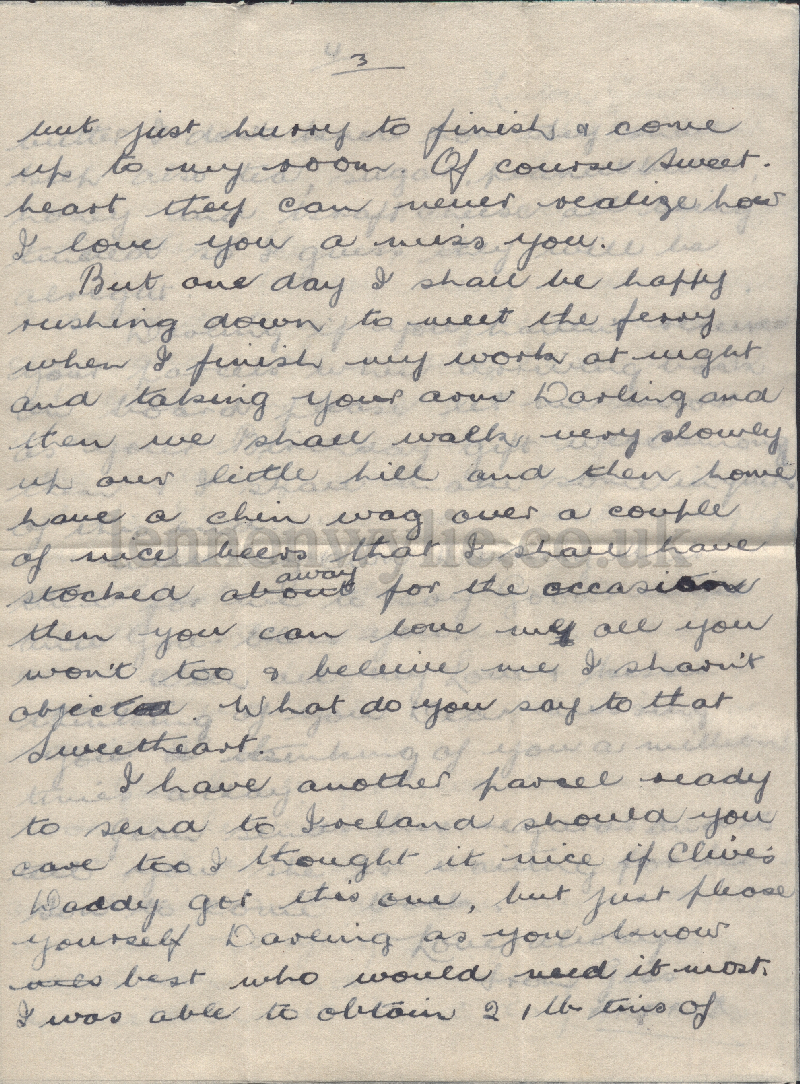 3
but just hurry to finish & come
up to my room. Of course Sweet-
heart they can never realize how
I love you & miss you.
But one day I shall be happy
rushing down to meet the ferry
when I finish my work at night
and taking your arm Darling and
then we shall walk very slowly
up our little hill and then home
have a chin wag over a couple
of nice beers that I shall have
stocked about away for the occasion
then you can love me all you
won't too & beleive me I sharn't
object. What do you say to that
Sweetheart.
I have another parcel ready
to send to Ireland should you
care too I thought it nice if Clive's
Daddy got this one, but just please
yourself Darling as you know
best who would need it most.
I was able to obtain 2 1lb tins of
lennonwylie.co.uk